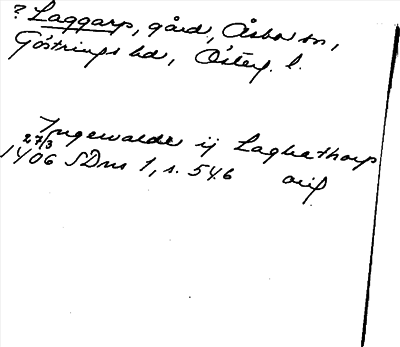 ? Laggarp, gård, Åsbo sn,
Göstrings hd, Österg. l.
Ingewalde ij Laghathorp
27/3
1406 SDns 1, s. 546 avif